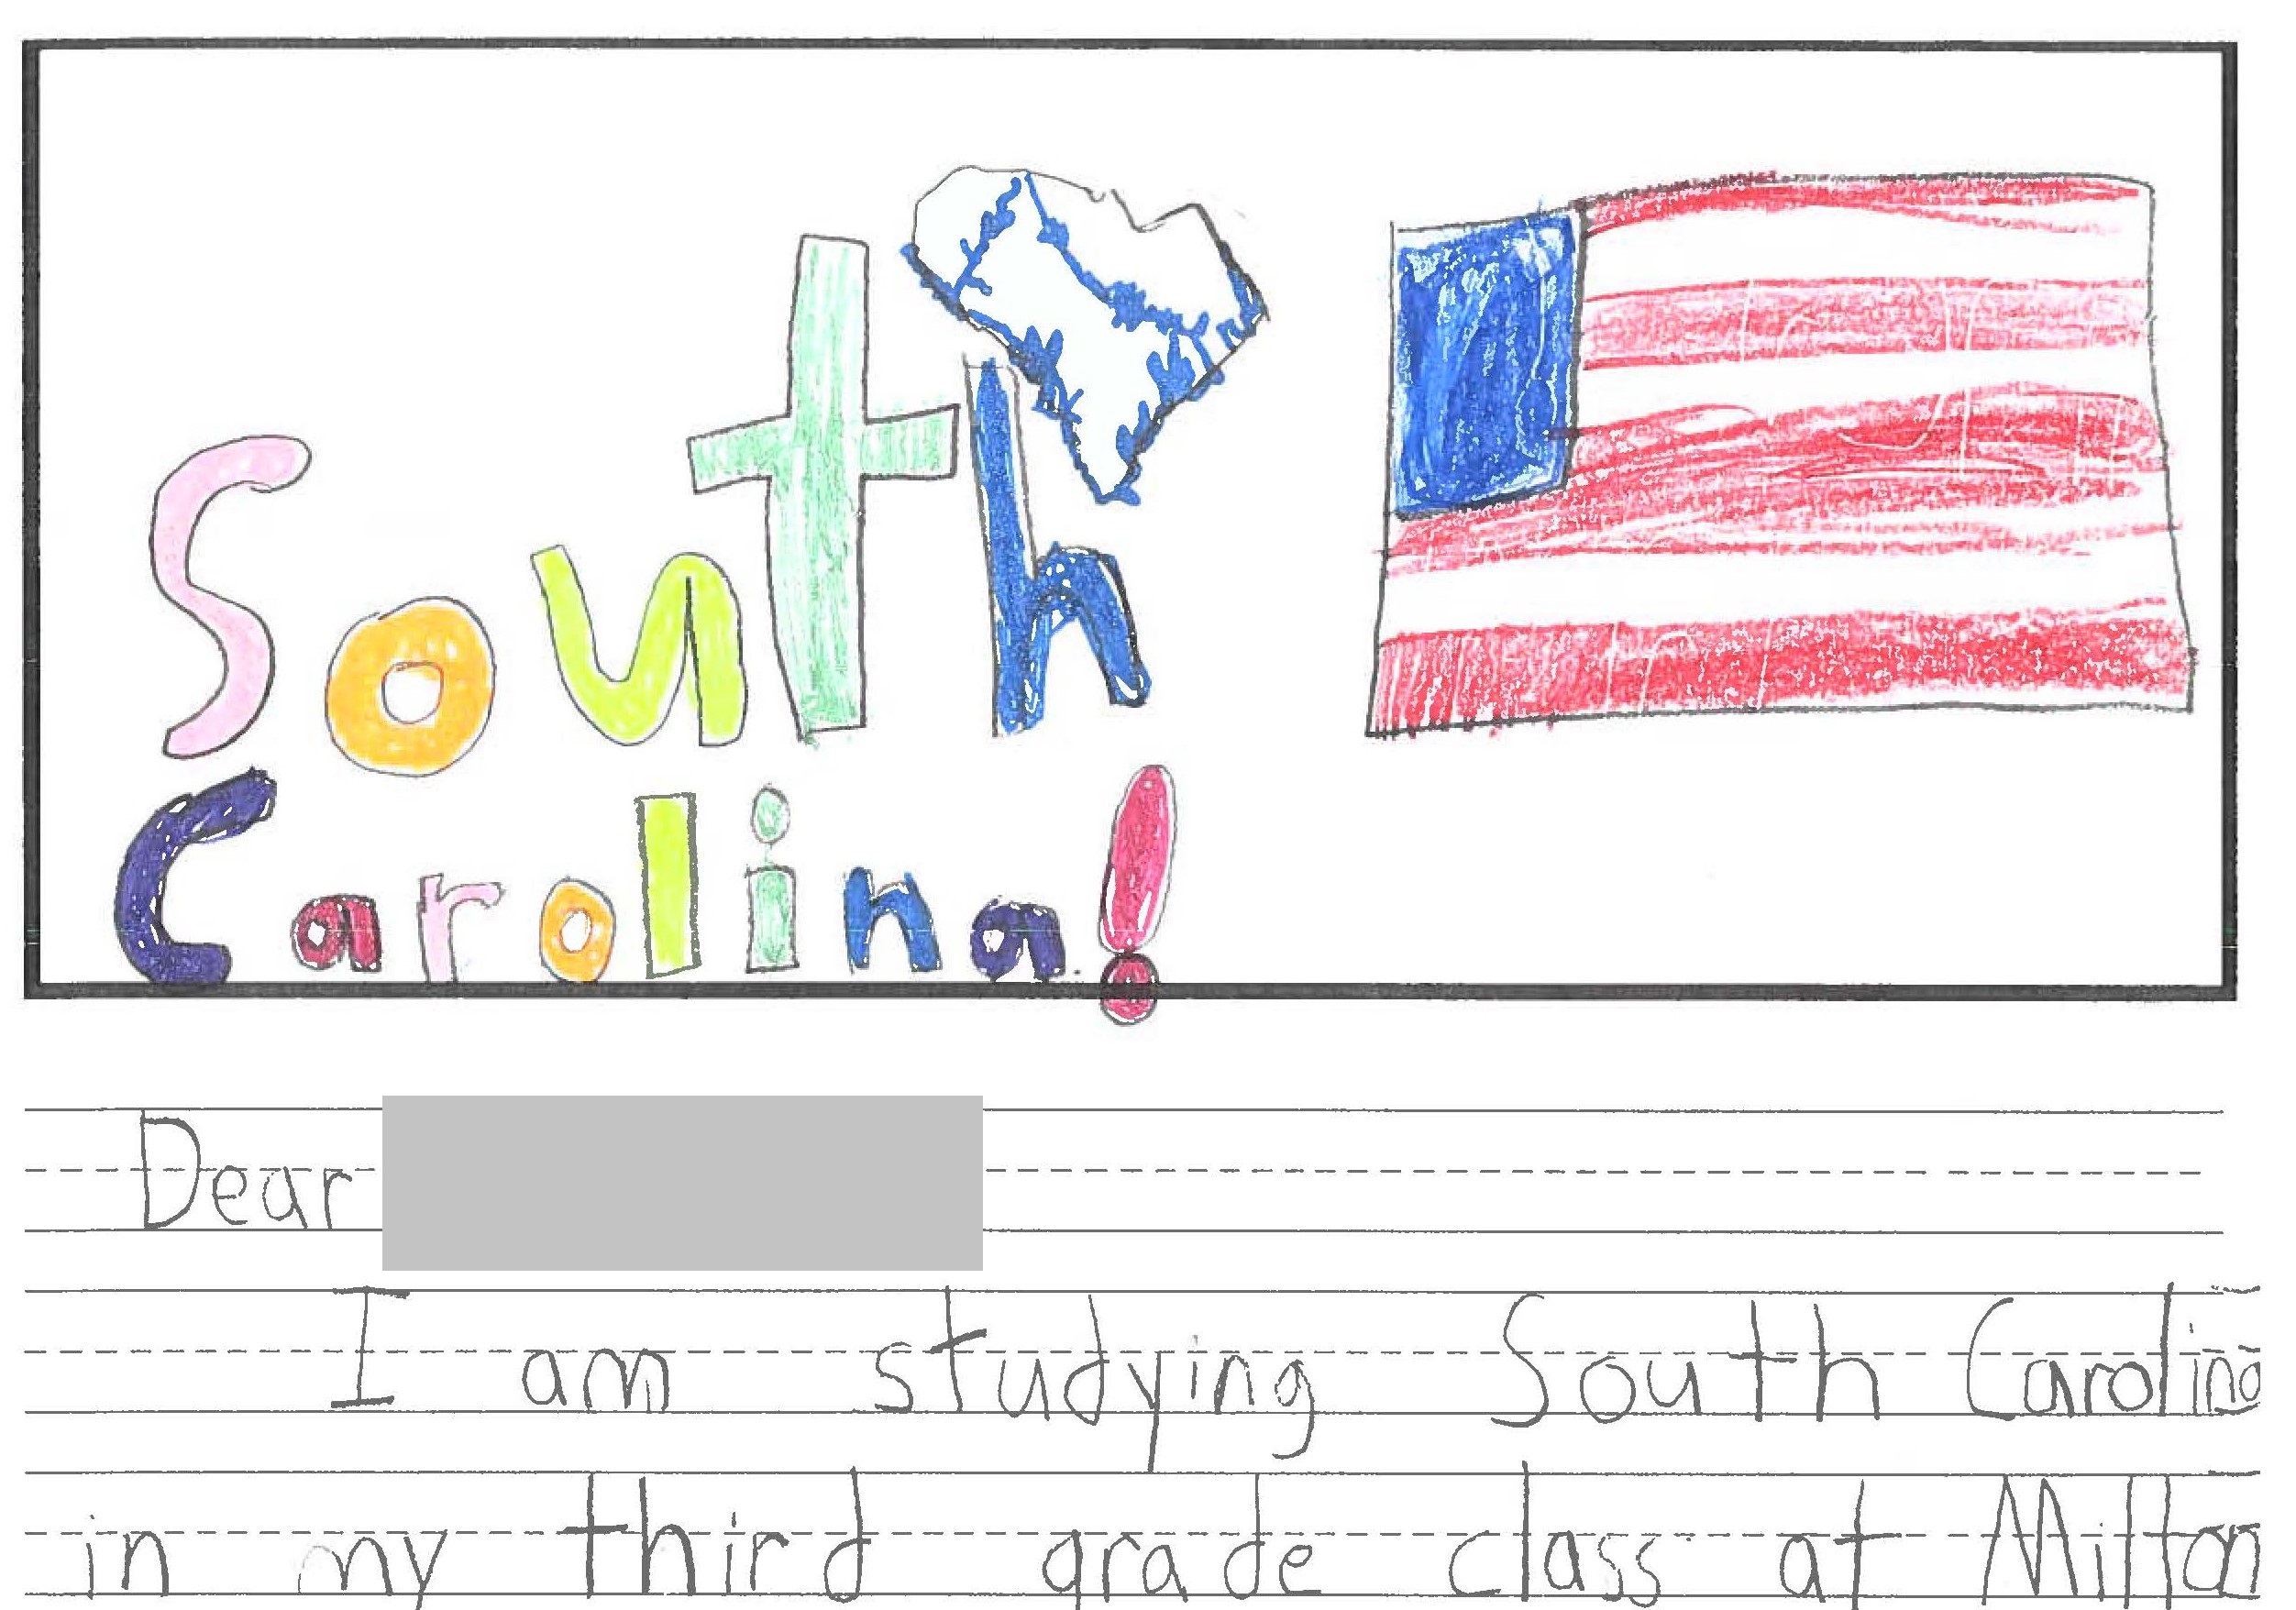 South
Carolina!
Dear
I am studying South Carolina
in my third grade class at Milton